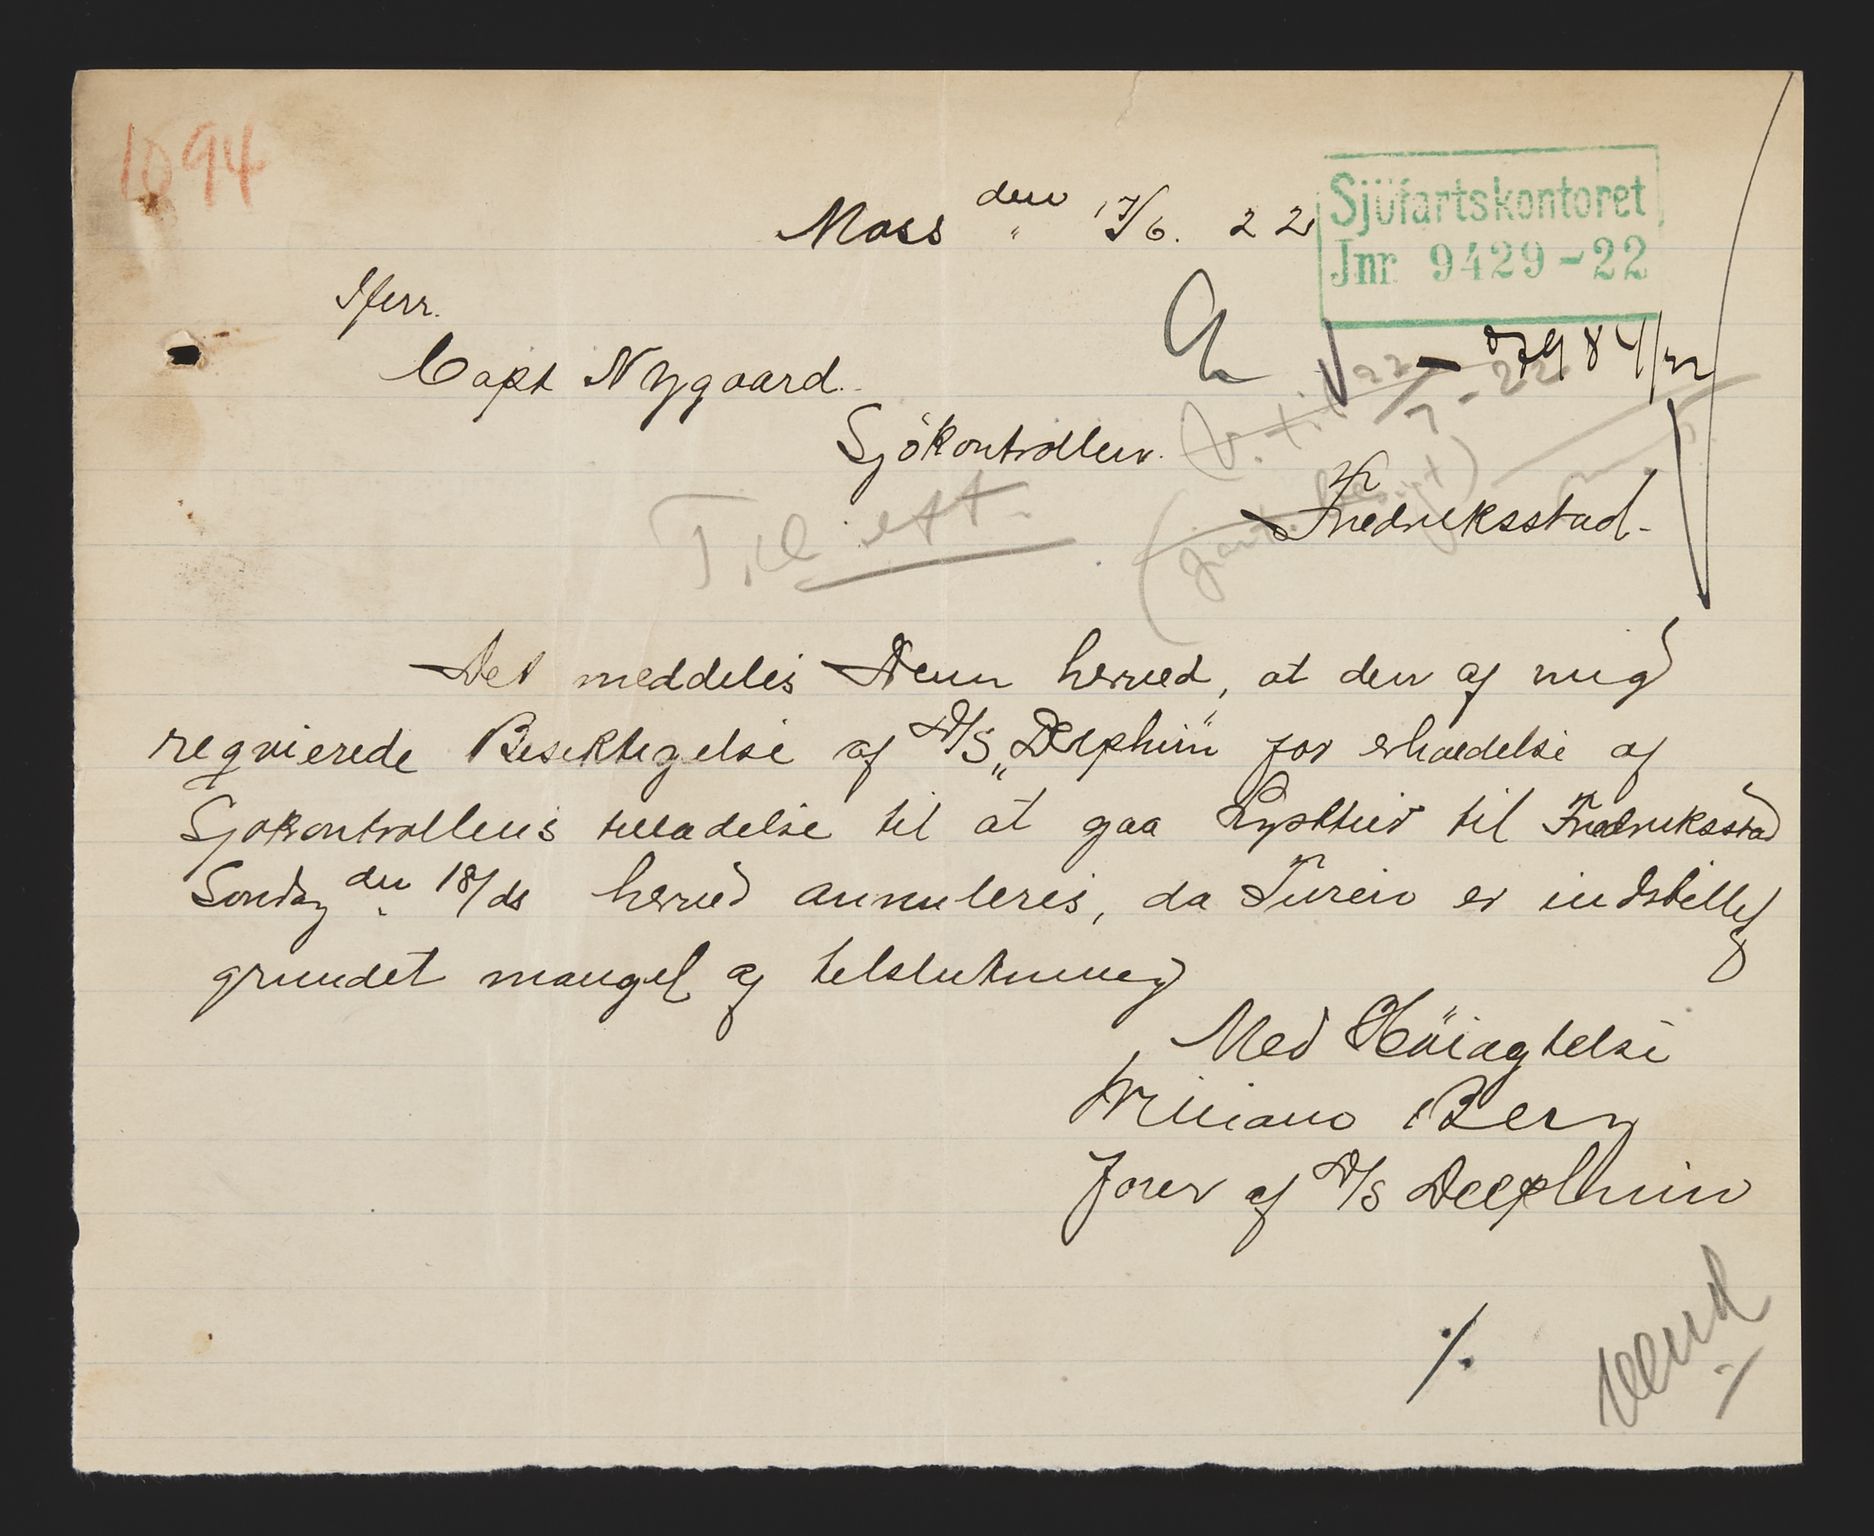 1094
Moss den 17/6. 22
Sjöfartskontoret
Jnr 9429-22
Herr.
Capt Nygaard.
Sjökontrollen.
Fredriksstad.
Til eft.
Det meddeles Dem herved, at den af mig
reqvierede Besiktigelse af D/S „Delphin" for erholdelse af
Sjøkontrollens tilladelse til at gaa Lysttur til Fredriksstad
Sondag den 18/ds herved annuleres, da Turen er indstillet
grundet mangel af tilslutning
Med Höiagtelse
William Berg
förer af D/S Delphin
./.
Vend